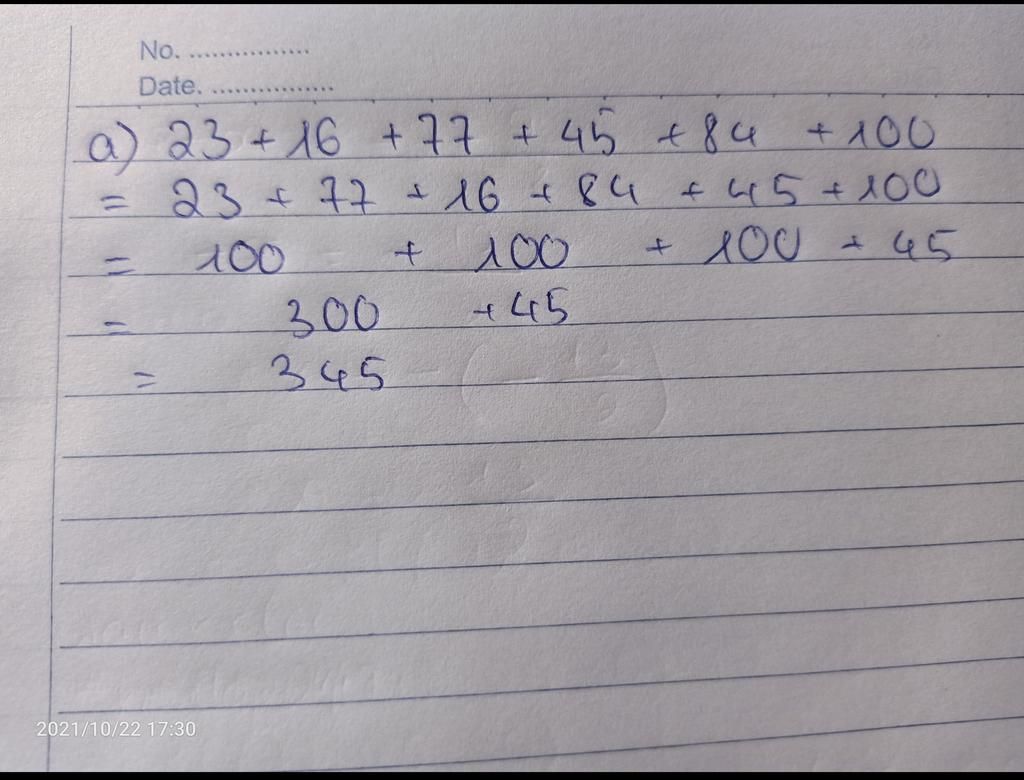 No. ................
Date. ................
a) 23 + 16 + 77 + 45 + 84 + 100
= 23 + 77 + 16 + 84 + 45 + 100
= 100 + 100 + 100 + 45
= 300 + 45
= 345
2021/10/22 17:30